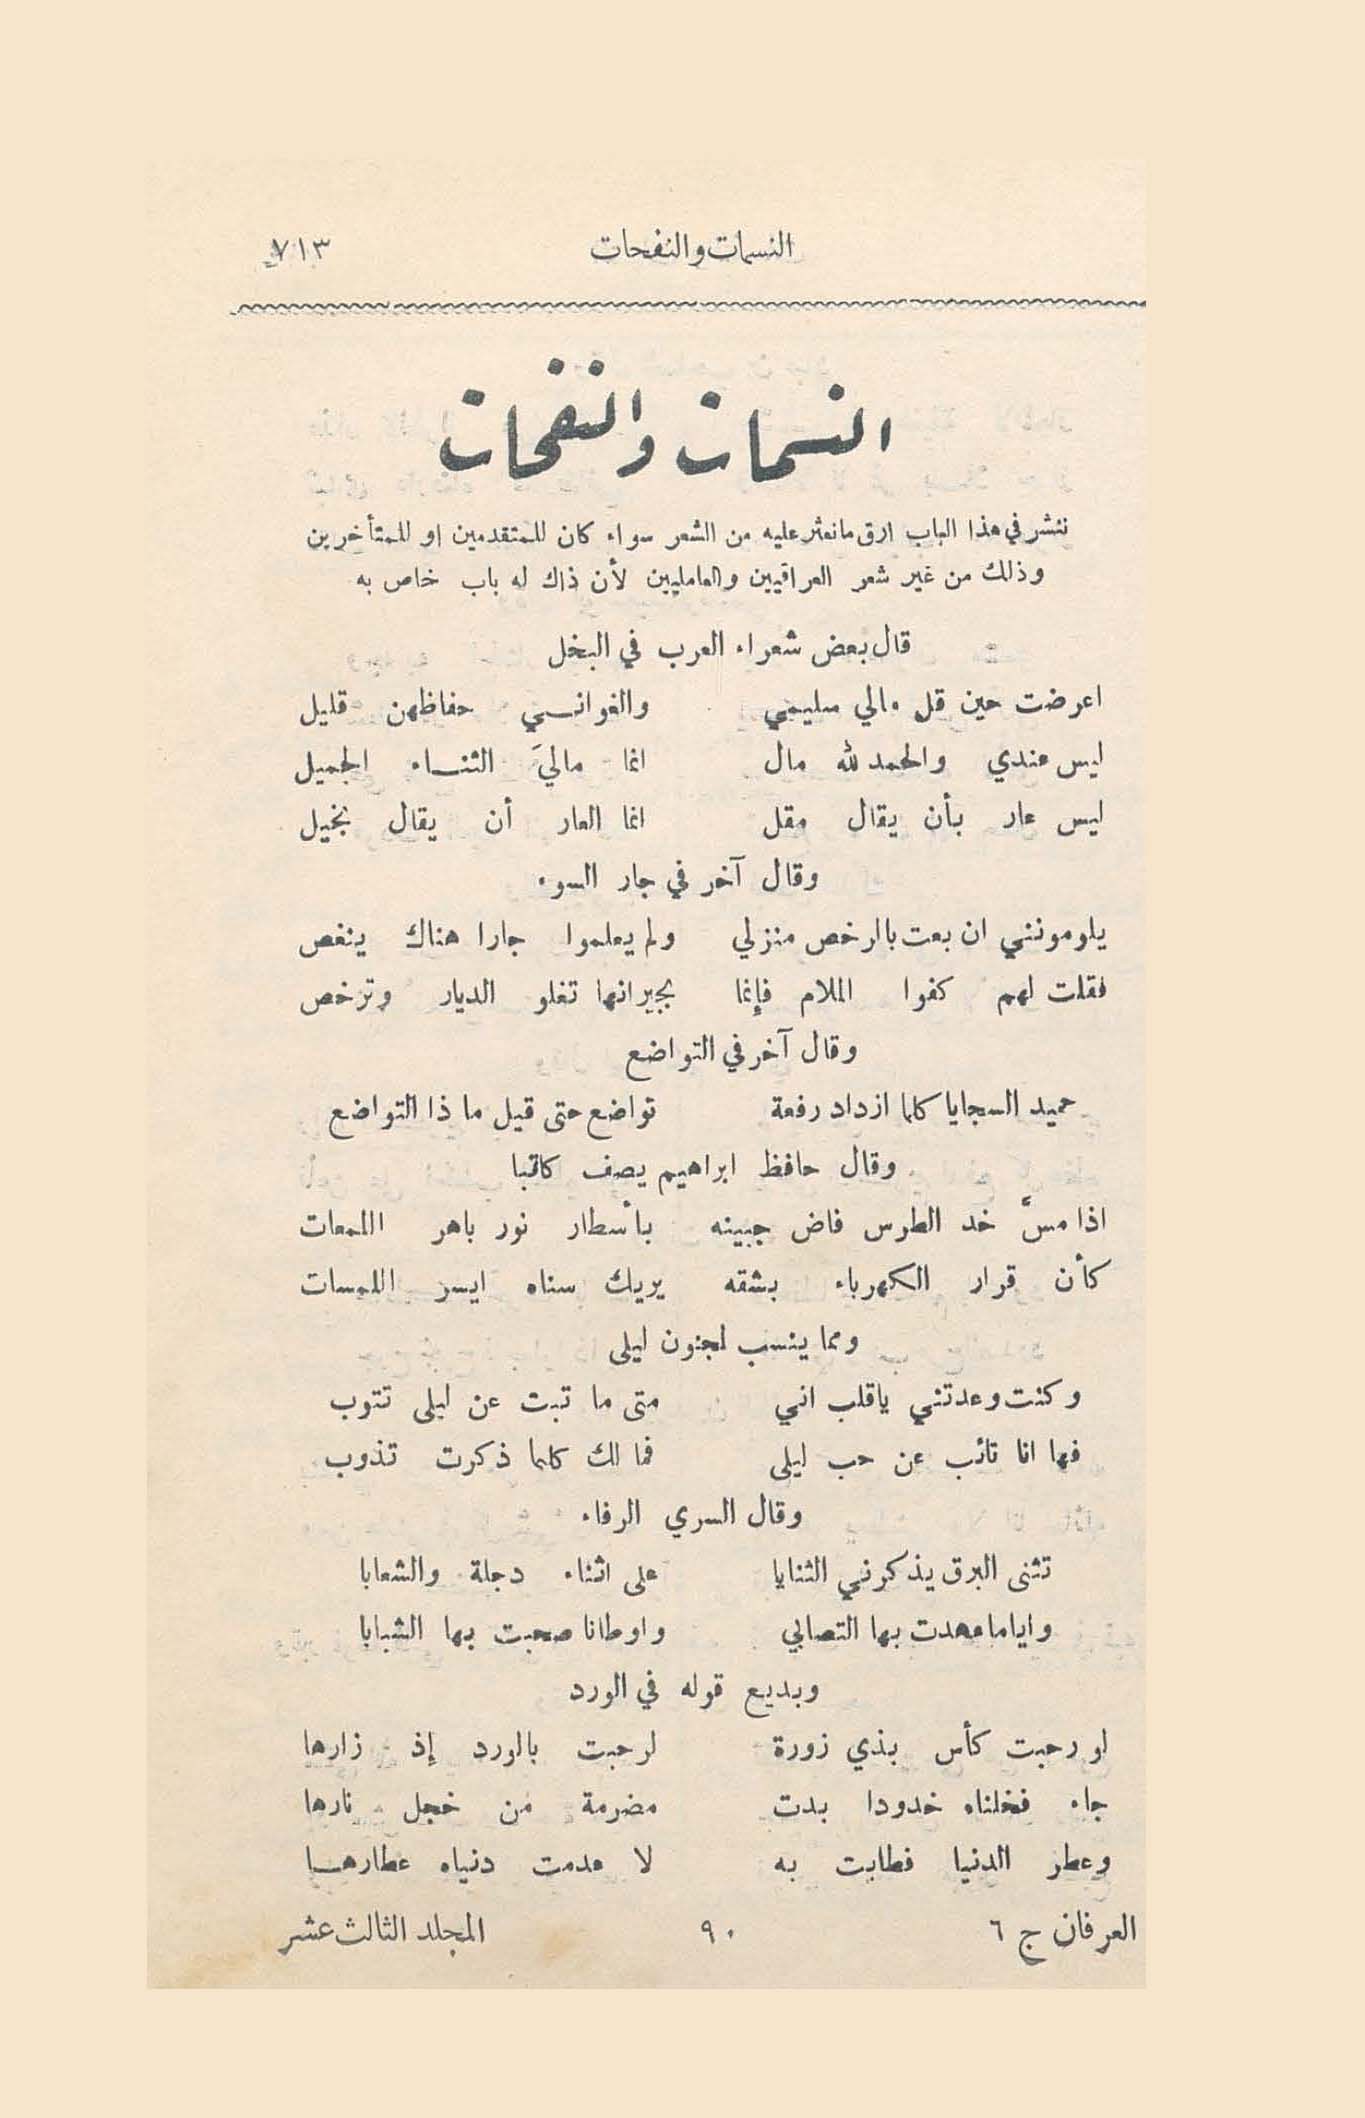 النسمات والنفحات ٧١٣
النسمات والنفحات
ننشر في هذا الباب ارق ما نعثر عليه من الشعر سواء كان للمتقدمين او للمتأخرين
وذلك من غير شعر العراقيين والعامليين لأن ذاك له باب خاص به
قال بعض شعراء العرب في البخل
اعرضت حين قل مالي سليمي والغوانـي حفاظهن قليل
ليس عندي والحمد لله مال انما ماليَ الثنـاء الجميل
ليس عار بأن يقال مقل انما العار أن يقال بخيل
وقال آخر في جار السوء
يلومونني ان بعت بالرخص منزلي ولم يعلموا جارا هناك ينغص
فقلت لهم كفوا الملام فإنما بجيرانها تغلو الديار وترخص
وقال آخر في التواضع
حميد السجايا كلما ازداد رفعة تواضع حتى قيل ما ذا التواضع
وقال حافظ ابراهيم يصف كاتبا
اذا مسَّ خد الطرس فاض جبينه بأسطار نور باهر اللمعات
كأن قرار الكهرباء بشقه يريك سناه ايسر اللمسات
ومما ينسب لمجنون ليلى
وكنت وعدتني ياقلب اني متى ما تبت عن ليلى تتوب
فها انا تائب عن حب ليلى فما لك كلما ذكرت تذوب
وقال السري الرفاء
تثنى البرق يذكرني الثنايا على اثناء دجلة والشعابا
واياما عهدت بها التصابي واوطانا صحبت بها الشبابا
وبديع قوله في الورد
لو رحبت كأس بذي زورة لرحبت بالورد إذ زارها
جاء فخلناه خدودا بدت مضرمة من خجل نارها
وعطر الدنيا فطابت به لا عدمت دنياه عطارهـا
العرفان ج ٦ ٩٠ المجلد الثالث عشر